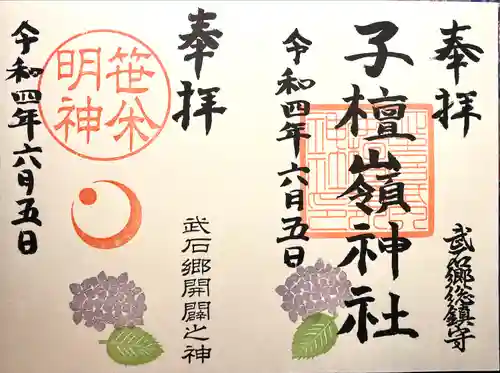 奉拝
武石郷総鎮守
子檀嶺神社
令和四年六月五日
奉拝
武石郷開闢之神
笹栄
明神
令和四年六月五日